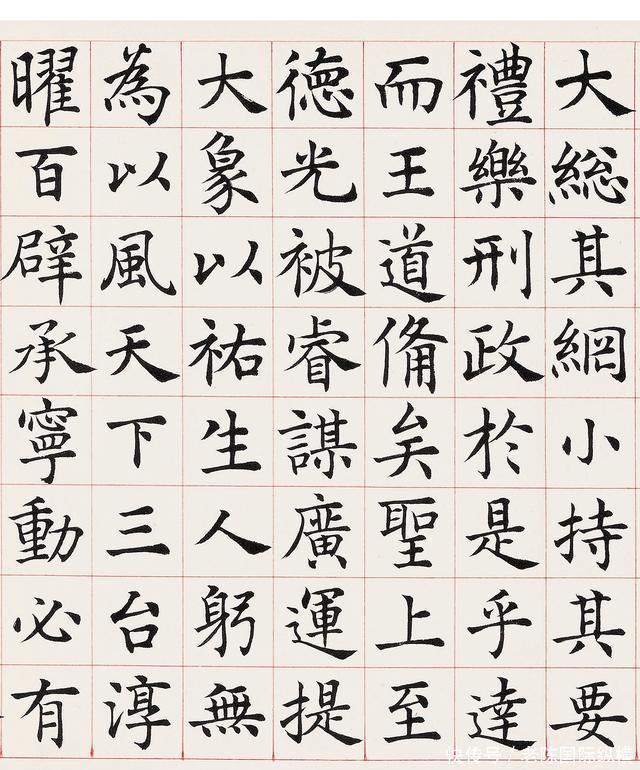 大総其網小持其要
禮樂刑政於是乎達
而王道備矣聖上至
徳光被睿謀廣運提
大象以祐生人躬無
為以風天下三台淳
曜百辟承寧動必有
快传号/老陈国际纵横